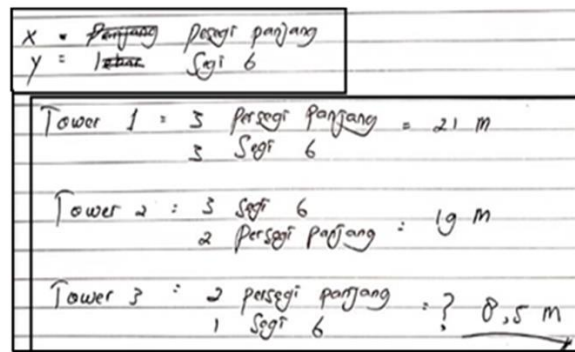 x = Panjang Pesegi panjang
y = lebar Segi 6
Tower 1 = 3 Persegi Panjang = 21 m
3 Segi 6
Tower 2 : 3 Segi 6
2 Persegi Panjang : 19 m
Tower 3 : 2 persegi panjang = ? 8,5 m
1 Segi 6